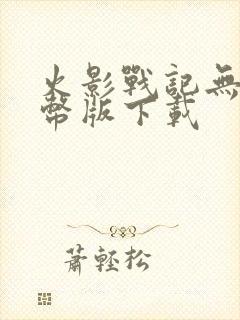 火影戰記無
幣版下載
蕭輕松